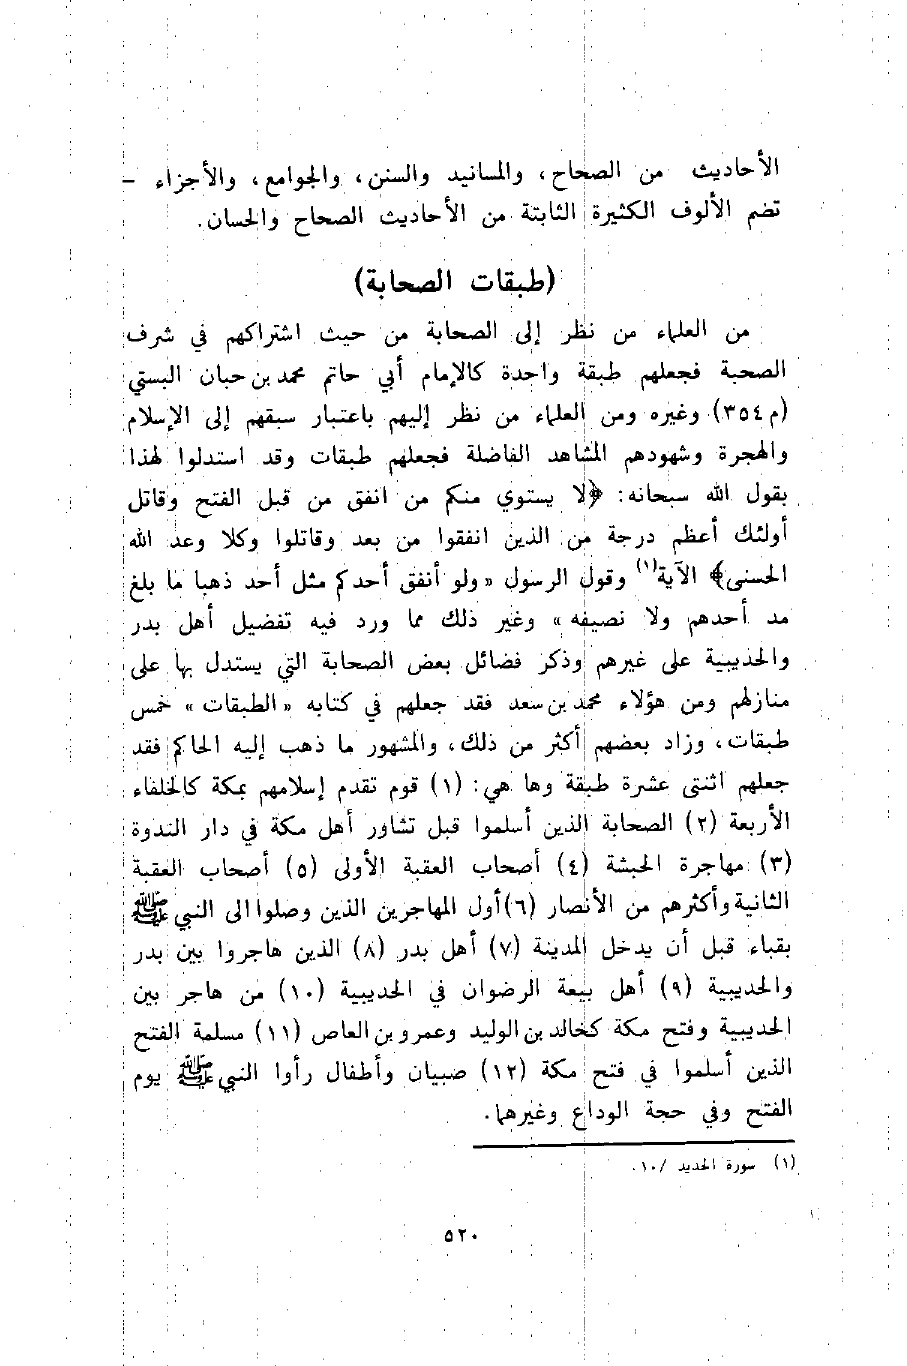 الأحاديث من الصحاح، والمسانيد والسنن، والجوامع، والأجزاء –
تضم الألوف الكثيرة الثابتة من الأحاديث الصحاح والحسان.
(طبقات الصحابة)
من العلماء من نظر إلى الصحابة من حيث اشتراكهم في شرف
الصحبة فجعلهم طبقة واحدة كالإمام أبي حاتم محمد بن حبان البستي
(م ٣٥٤) وغيره ومن العلماء من نظر إليهم باعتبار سبقهم إلى الإسلام
والهجرة وشهودهم المشاهد الفاضلة فجعلهم طبقات وقد استدلوا لهذا
بقول الله سبحانه: ﴿لا يستوي منكم من انفق من قبل الفتح وقاتل
أولئك أعظم درجة من الذين انفقوا من بعد وقاتلوا وكلا وعد الله
الحسنى﴾ الآية(١) وقول الرسول «ولو أنفق أحدكم مثل أحد ذهبا ما بلغ
مد أحدهم ولا نصيفه» وغير ذلك مما ورد فيه تفضيل أهل بدر
والحديبية على غيرهم وذكر فضائل بعض الصحابة التي يستدل بها على
منازلهم ومن هؤلاء محمد بن سعد فقد جعلهم في كتابه «الطبقات» خمس
طبقات، وزاد بعضهم أكثر من ذلك، والمشهور ما ذهب إليه الحاكم فقد
جعلهم اثنتى عشرة طبقة وها هي: (١) قوم تقدم إسلامهم بمكة كالخلفاء
الأربعة (٢) الصحابة الذين أسلموا قبل تشاور أهل مكة في دار الندوة
(٣) مهاجرة الحبشة (٤) أصحاب العقبة الأولى (٥) أصحاب العقبة
الثانية وأكثرهم من الأنصار (٦) أول المهاجرين الذين وصلوا الى النبي ﷺ
بقباء قبل أن يدخل المدينة (٧) أهل بدر (٨) الذين هاجروا بين بدر
والحديبية (٩) أهل بيعة الرضوان في الحديبية (١٠) من هاجر بين
الحديبية وفتح مكة كخالد بن الوليد وعمرو بن العاص (١١) مسلمة الفتح
الذين أسلموا في فتح مكة (١٢) صبيان وأطفال رأوا النبي ﷺ يوم
الفتح وفي حجة الوداع وغيرهما.
(١) سورة الحديد /١٠.
٥٢٠